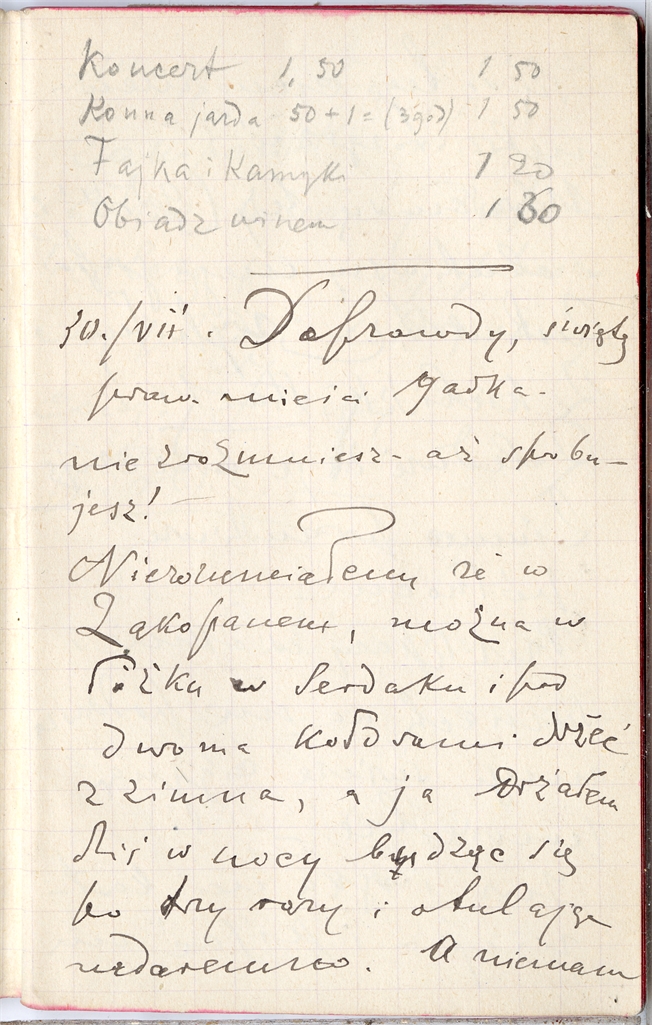 Koncert 1,50 1 50
Konna jazda 50+1= (3 god) 1 50
Fajka i Kamyki 1 20
Obiad z winem 1 60
30./VII. Doprawdy, świętą
praw. mieści gadka.
nie zrozumiesz aż sprobu-
jesz!
Nierozumiałem że w
Zakopanem, można w
łóżku w serdaku i pod
dwoma kołdrami drżeć
z zimna, a ja drżałem
dziś w nocy budząc się
po trzy razy i otulając
nadaremno. A niemam